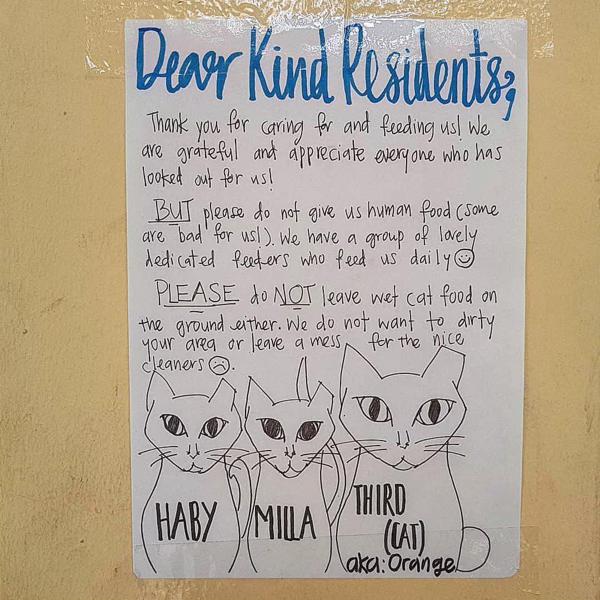 Dear Kind Residents,
Thank you for caring for and feeding us! We
are grateful and appreciate everyone who has
looked out for us!
BUT please do not give us human food (some
are bad for us!). We have a group of lovely
dedicated feeders who feed us daily
PLEASE do NOT leave wet cat food on
the ground either. We do not want to dirty
your area or leave a mess for the nice
cleaners .
HABY
MILLA
THIRD
(CAT)
aka: Orange